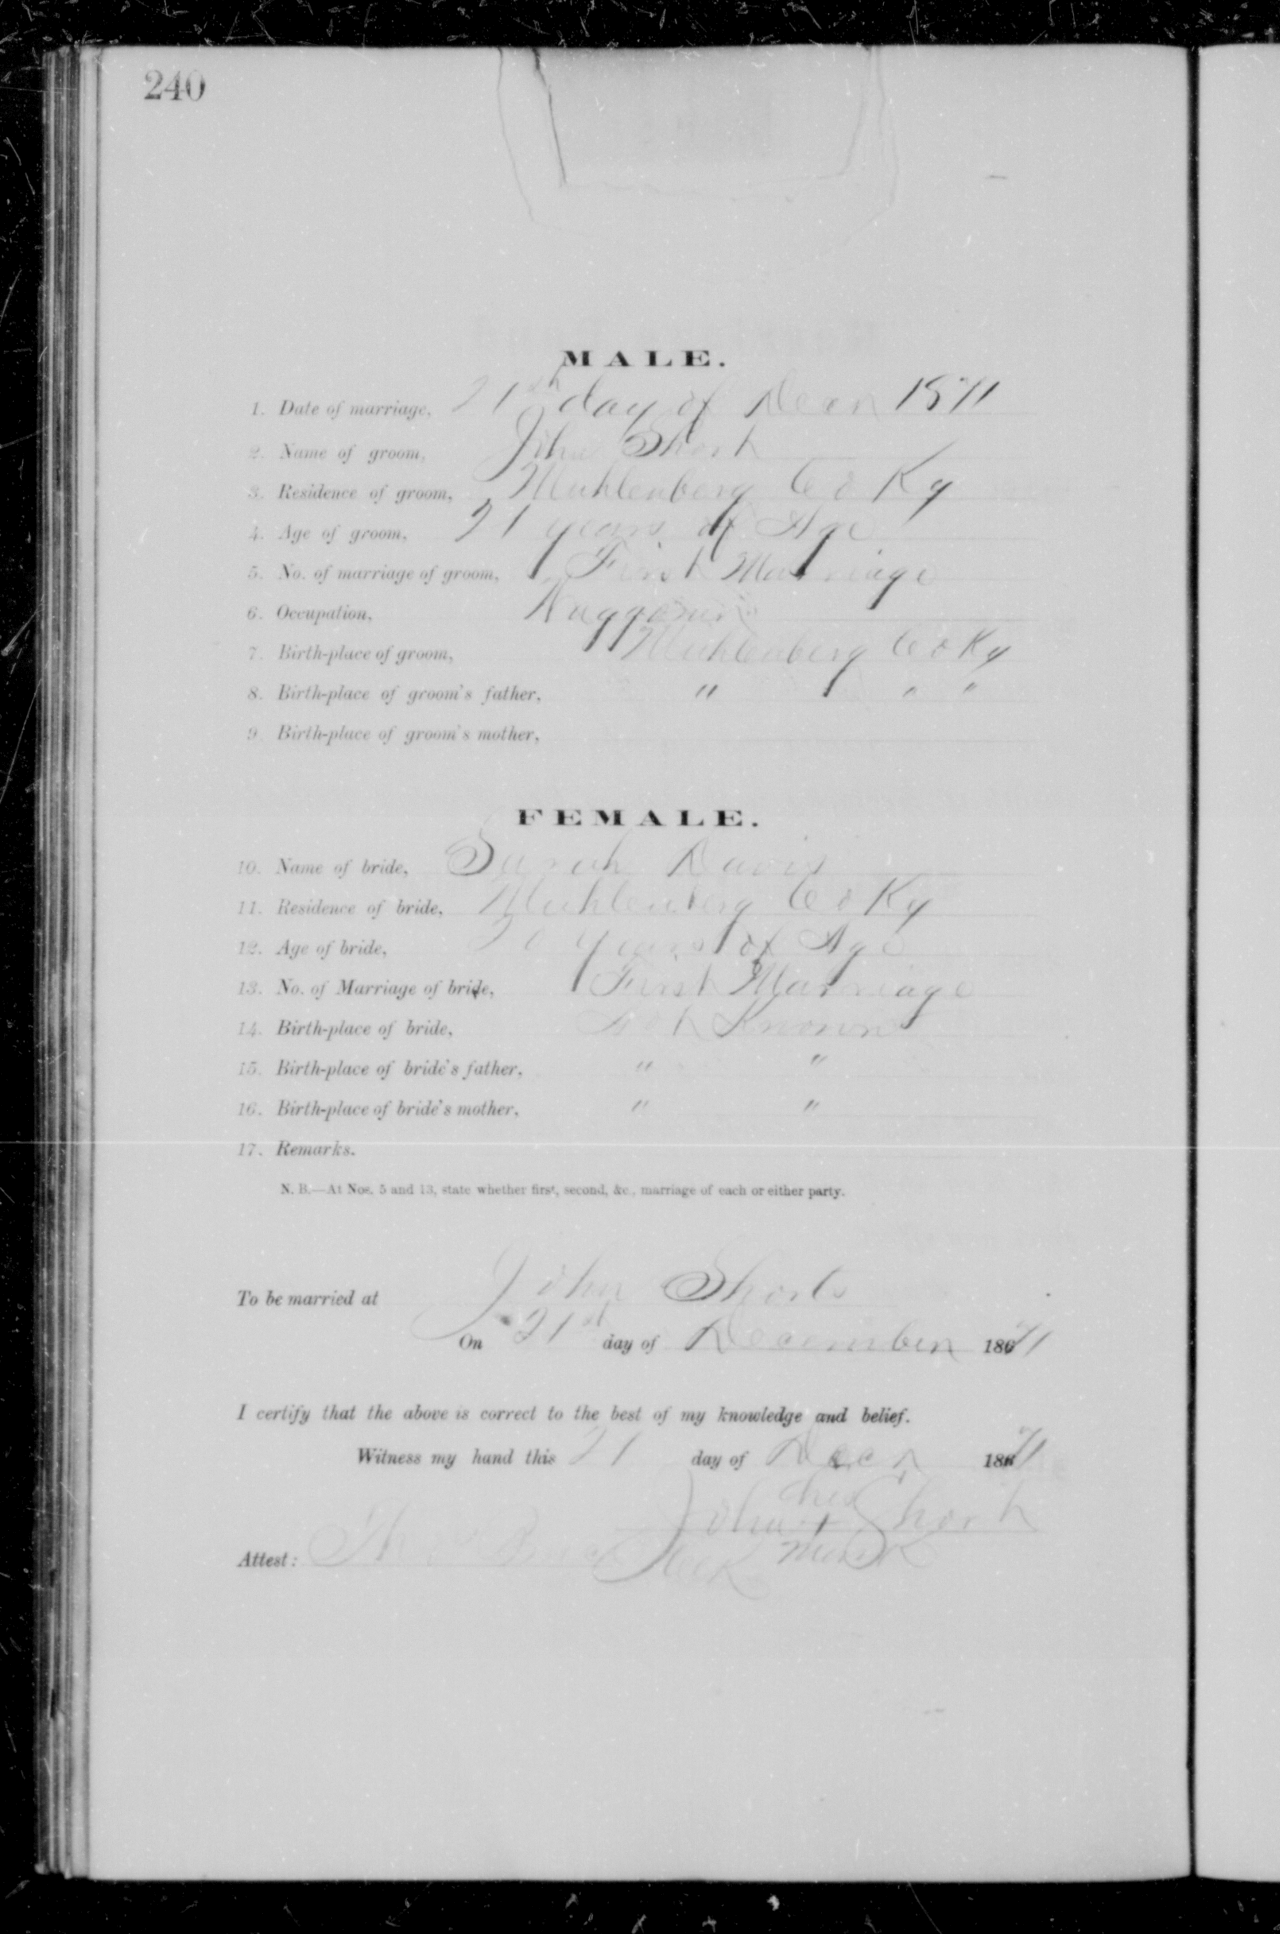 240
MALE.
1. Date of marriage, 21st day of Decr 1871
2. Name of groom, John Short
3. Residence of groom, Muhlenberg Co Ky
4. Age of groom, 21 years of Age
5. No. of marriage of groom, First Marriage
6. Occupation,
7. Birth-place of groom, Muhlenberg Co Ky
8. Birth-place of groom's father, " " "
9. Birth-place of groom's mother,
FEMALE.
10. Name of bride, Sarah Davis
11. Residence of bride, Muhlenberg Co Ky
12. Age of bride, years of Age
13. No. of Marriage of bride, First Marriage
14. Birth-place of bride, Not Known
15. Birth-place of bride's father, " "
16. Birth-place of bride's mother, " "
17. Remarks.
N. B.—At Nos. 5 and 13, state whether first, second, &c., marriage of each or either party.
To be married at John Shorts
On 21st day of December 1871
I certify that the above is correct to the best of my knowledge and belief.
Witness my hand this 21 day of Decr 1871
his
John + Short
mark
Attest: